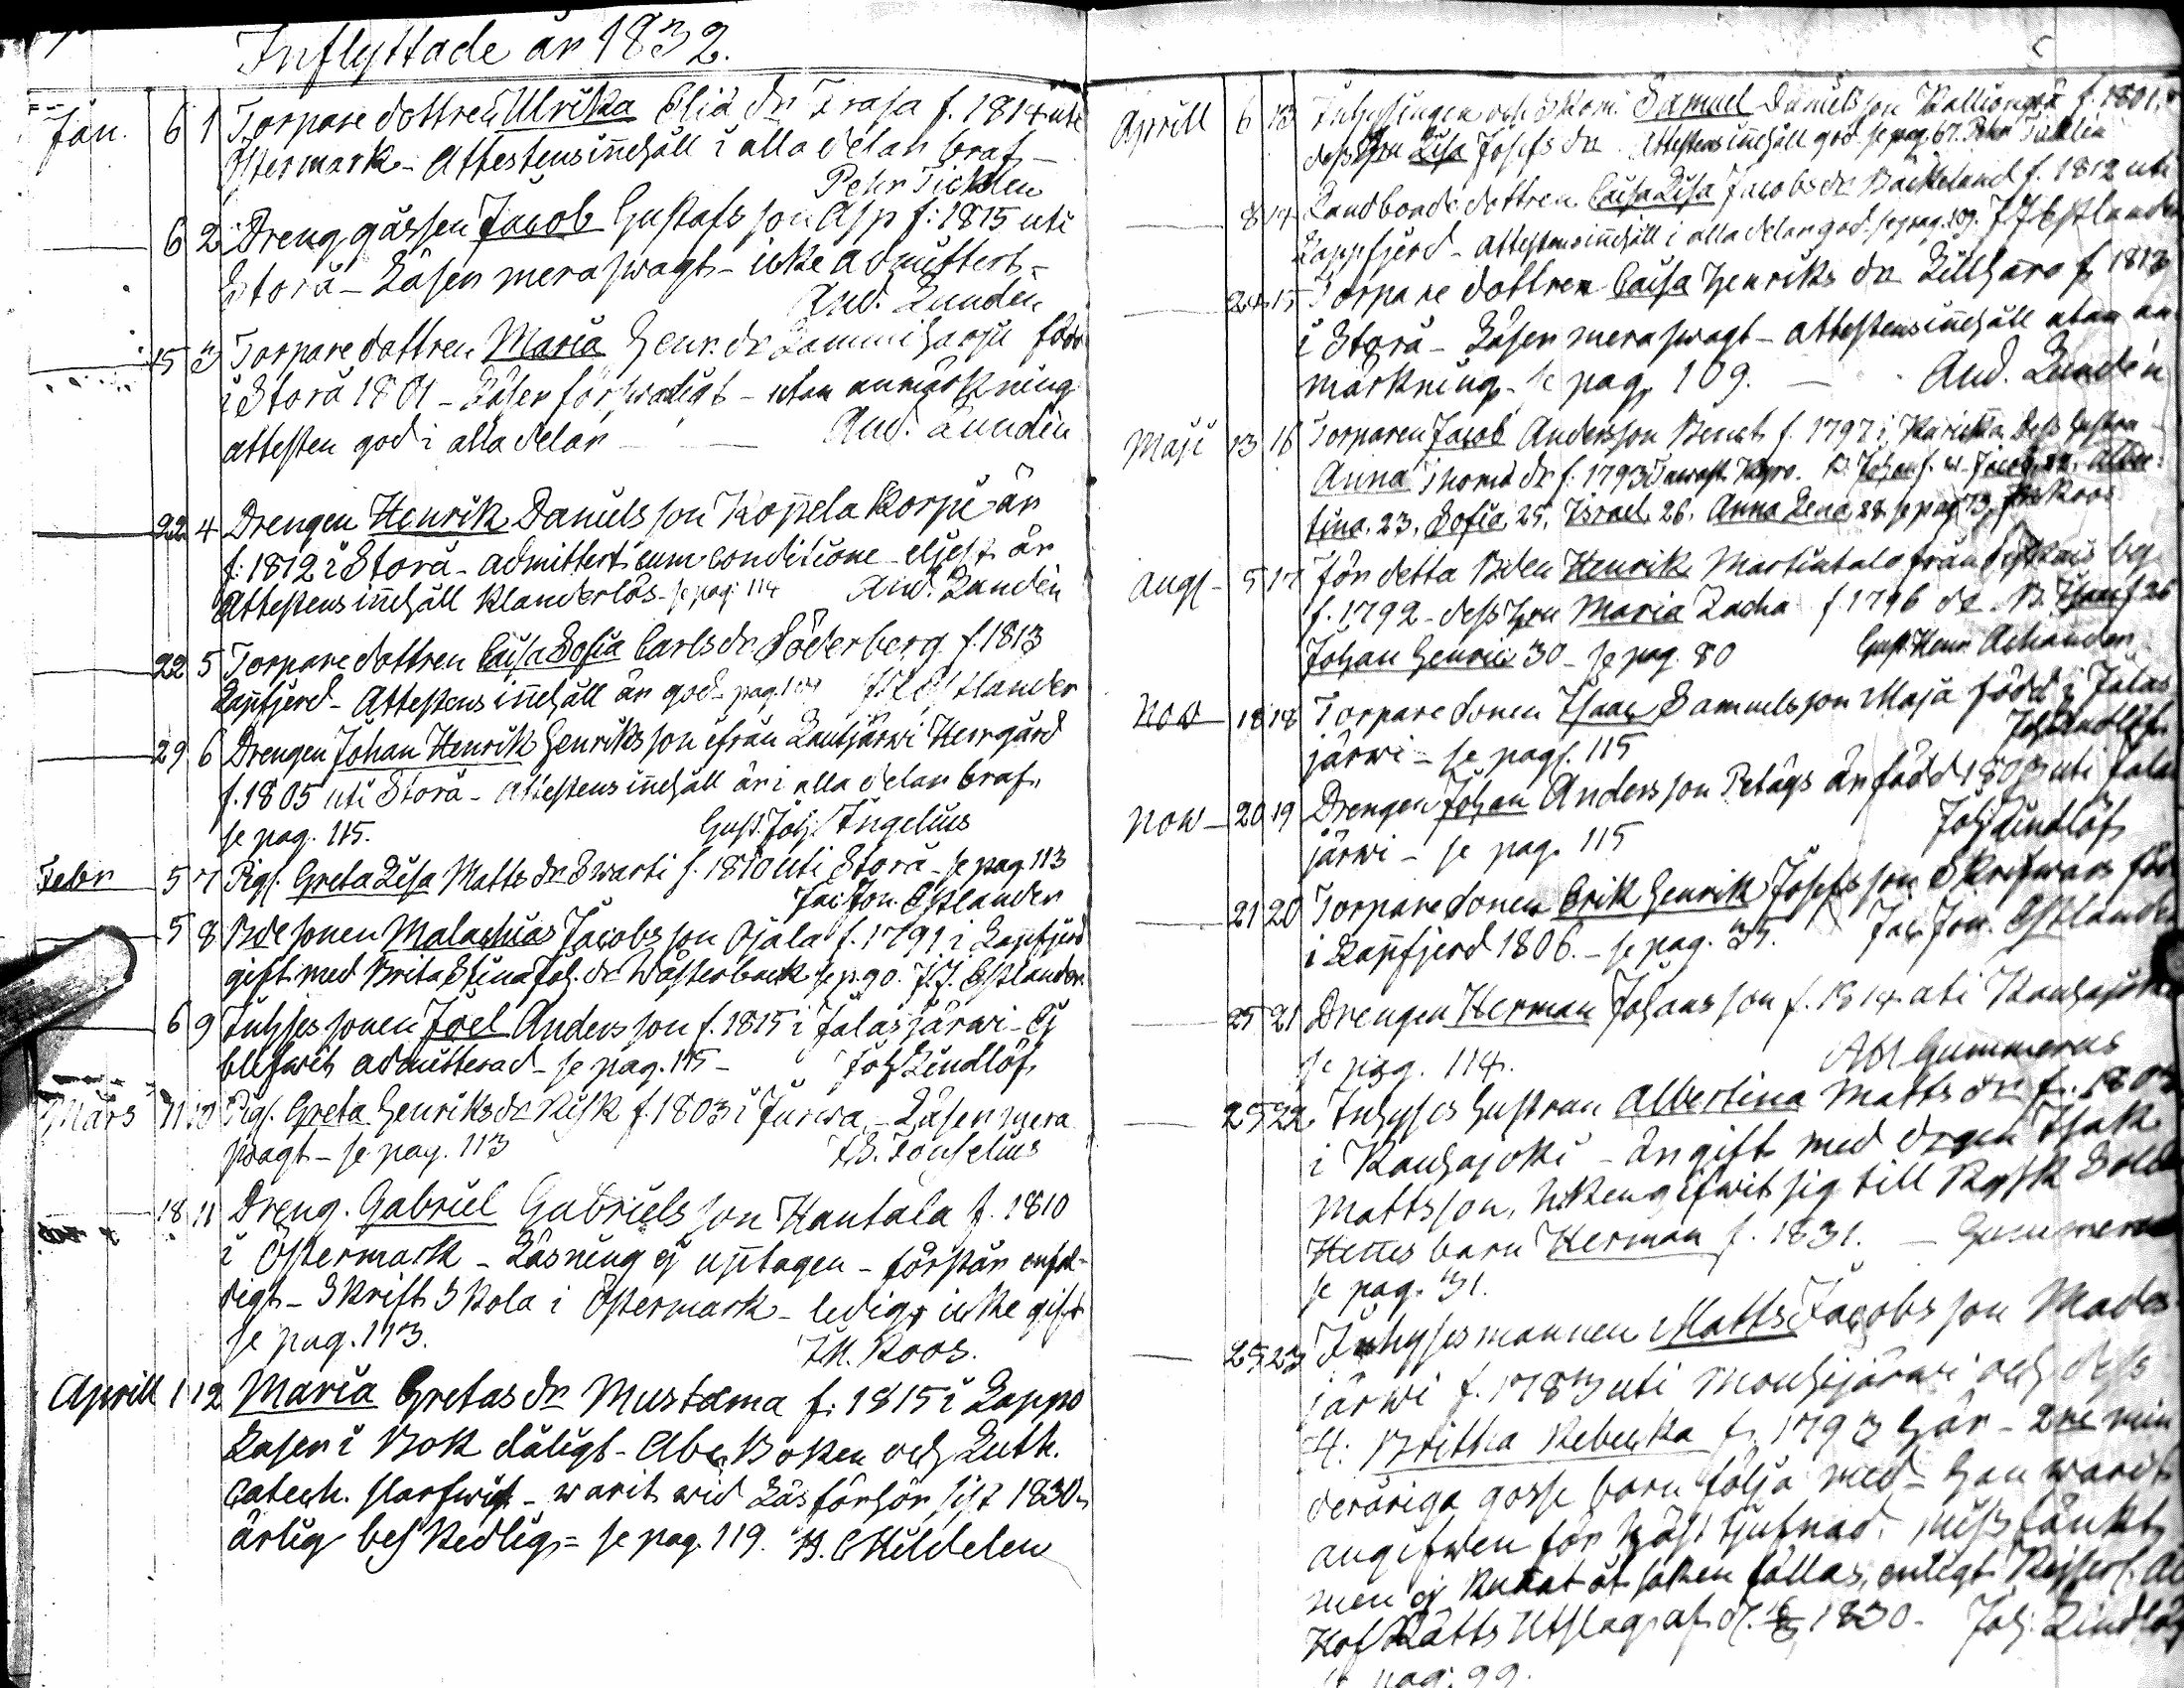 Inflyttade år 1832.
Jan. 6 1 Torpare dottren Ulrika Elia dr Trasa f. 1814 uti
Östermark - Attestens innehåll i alla delar braf -
Pehr Ticklén
6 2 Dreng gåssen Jacob Gustafsson Asp f: 1815 uti
Storå - Läser mera swagt - icke admittert -
And. Lundén
15 3 Torpare dottren Maria Henr. dr Lammiharju född
i Storå 1801 - Läser försvarligt - utan anmärkning
attesten god i alla delar - And. Lundén
22 4 Drengen Henrik Danielsson Koppela Korpi är
f: 1812 i Storå - admittert cum conditione - eljest är
Attestens innehåll klanderlös - se pag: 114 And. Lundén
22 5 Torpare dottren Caisa Sofia Carls dr Söderberg f. 1813
Lappfjerd - Attestens innehåll är god - pag. 104 Estlander
29 6 Drengen Johan Henrik Henriksson ifrån Lautjärwi Herrgård
f. 1805 uti Storå - attestens innehåll är i alla delar braf.
se pag. 115. Gust. Joh. Ingelius
Febr 5 7 Pig. Greta Lisa Matts dr Swarti f. 1810 uti Storå - se pag 113
Jac. Jon. Estlander
5 8 Bde sonen Malachias Jacobsson Ojala f. 1791 i Lappfjerd
gift med Brita Stina Joh. dr Wästerback se p. 90. J.J. Estlander
6 9 Inhyses sonen Joel Andersson f. 1815 i Jalasjärwi - Ej
blefwit admitterad - se pag. 115 - Joh Lindlöf
Mars 11 10 Pig. Greta Henriks dr Risk f. 1803 i Jurwa - Läser mera
swagt - se pag. 113 Tonselius
18 11 Dreng. Gabriel Gabrielsson Hautala f. 1810
i Östermark - Läsning ej upptagen - förstår enfal-
digt - Skrift Skola i Östermark - ledig, icke gift
se pag. 113. Roos.
Aprill 1 12 Maria Gretas dr Mustama f: 1815 i Lappo
Läser i Bok dåligt - Abc Boken och Luth.
Catech. - warit wid Läsförhör sist 1830.
ärlig beskedlig = se pag. 119.
Aprill 6 13 Inhysingen och Skom. Samuel Danielsson Kalliongpä f. 1801.
dess Hru Lisa Josefs dr Attestens innehåll god. se pag. 67. Pehr Ticklén
8 14 Landboade dottren Caisa Lisa Jacobs dr Backeland f. 1812 uti
Lappfjerd - Attestens innehåll i alla delar god. se pag. 109. J J Estlander
24 15 Torpare dottren Caisa Henriks dr Lillharo f. 1813
i Storå - Läser mera swagt - attestens innehåll utan an
märkning - se pag. 109. - And. Lundén
Maji 13 16 Torparen Jacob Andersson f. 1797 i Dess hustru
Anna Thomas dr f. 1793 Tawast Kyro.
tina. 23. Sofia, 25. Israel. 26. Anna Lena 28. se pag 73 Roos
Augs - 5 17 för detta Bden Henrik Martintalo från
f. 1792 - dess Hru Maria Zacha f. 1796 26
Johan Henric 30 - se pag. 80 Gust. Henr. Achander
Now 18 18 Torpare sonen Isaac Samuelsson Maja född i Jalas
järwi - se pag. 115 Joh Lindlöf
Now - 20 19 Drengen Johan Andersson Petäys är född 1803 uti Jalas
järwi - se pag. 115 Joh Lindlöf
21 20 Torpare sonen Erik Henrik Josefsson Skrifwars född
i Lappfjerd 1806. - se pag. 35. Jac. Jon. Estlander
25 21 Drengen Herman Johansson f. 1814 uti Kauhajoki
se pag. 114. Gummerus
25 22 Inhyses hustrun Albertina Matts dr f.
i Kauhajoki - är gift med drgen Isak
Mattsson, hvilken gifwit sig till Rysk Soldat
Hennes barn Herman f. 1831. - Gummerus
se pag. 31.
25 23 Inhysesmannen Matts Jacobsson Mados
järwi f. 1783 uti Mouhijärwi och dess
H. Britha Rebecka f. 1793 här - 2ne min
deråriga gosse barn följa med - Han warit
angifwen för häst tjufnad, misstänkt
men ej kunnat åt saken fällas, enligt Keijserl. Åbo
Hof Rätts Utslag af d. 1830 - Joh: Lindlöf
pag: 99.